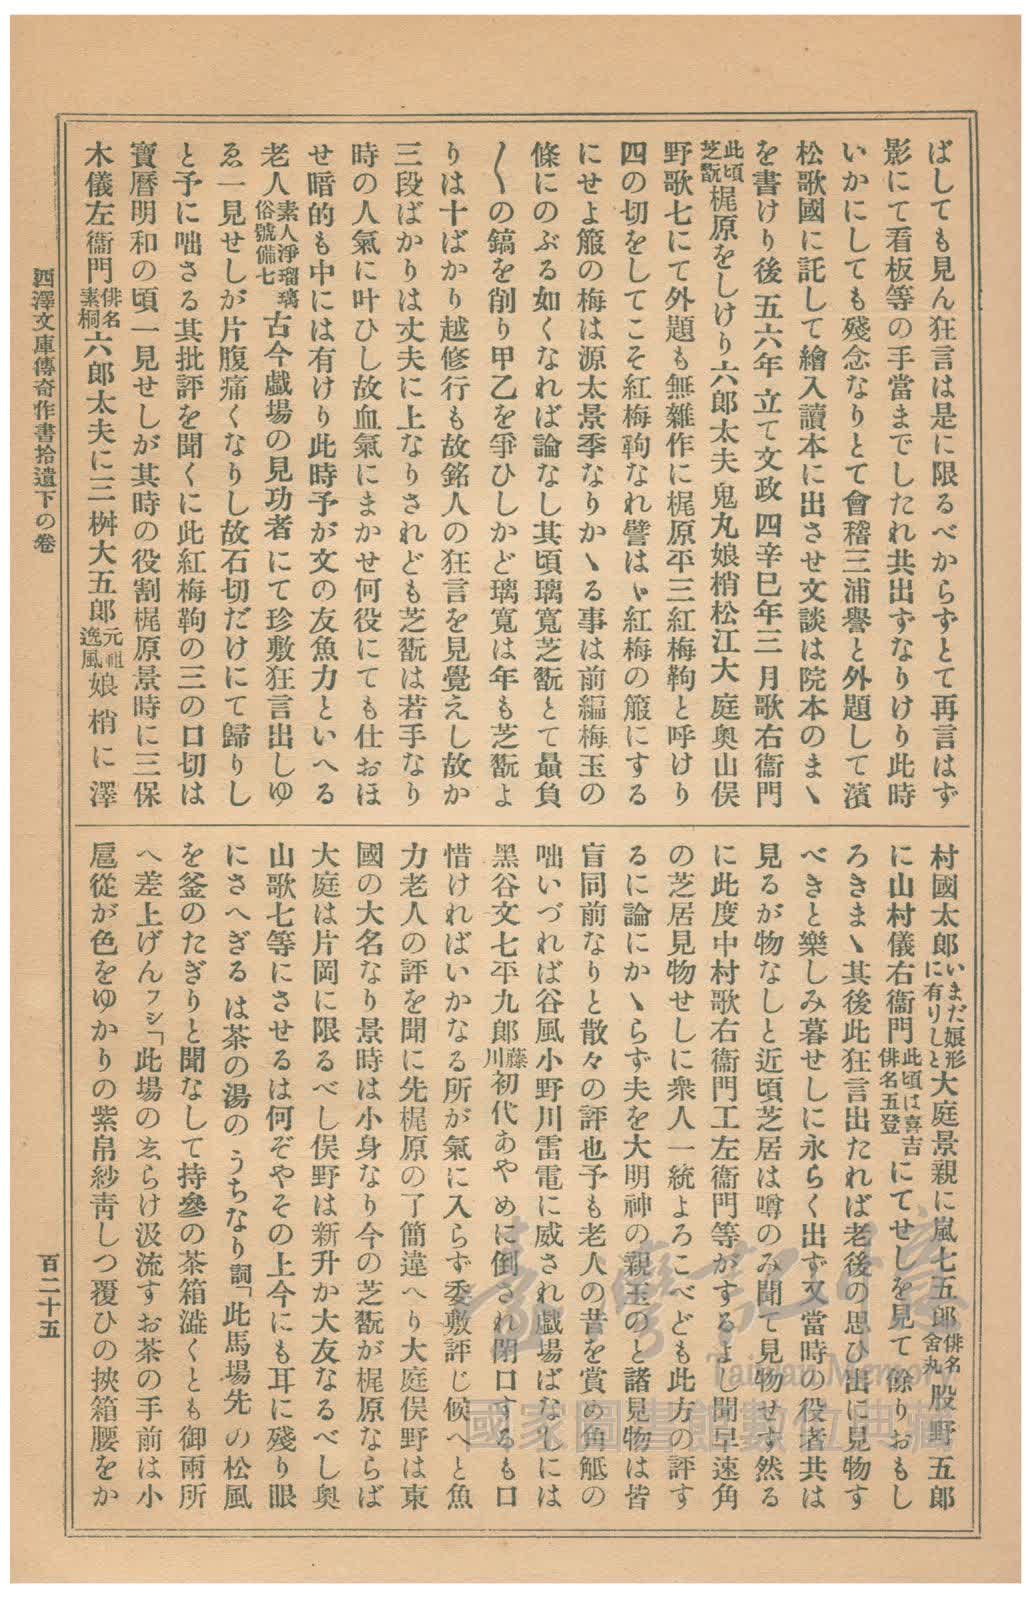 ばしても見ん狂言は是に限るべからずとて再言はず
影にて看板等の手當までしたれ共出ずなりけり此時
いかにしても殘念なりとて會稽三浦譽と外題して濱
松歌國に託して繪入讀本に出させ文談は院本のまゝ
を書けり後五六年立て文政四辛巳年三月歌右衞門
此頃芝翫梶原をしけり六郎太夫鬼丸娘梢松江大庭奧山俣
野歌七にて外題も無雜作に梶原平三紅梅靮と呼けり
四の切をしてこそ紅梅靮なれ譬はゞ紅梅の箙にする
にせよ箙の梅は源太景季なりかゝる事は前編梅玉の
條にのぶる如くなれば論なし其頃璃寬芝翫とて贔負
〳〵の鎬を削り甲乙を爭ひしかど璃寬は年も芝翫よ
りは十ばかり越修行も故銘人の狂言を見覺えし故か
三段ばかりは丈夫に上なりされども芝翫は若手なり
時の人氣に叶ひし故血氣にまかせ何役にても仕おほ
せ暗的も中には有けり此時予が文の友魚力といへる
老人素人淨瑠璃俗號備七古今戲場の見功者にて珍敷狂言出しゆ
ゑ一見せしが片腹痛くなりし故石切だけにて歸りし
と予に咄さる其批評を聞くに此紅梅靮の三の口切は
寶曆明和の頃一見せしが其時の役割梶原景時に三保
木儀左衞門俳名素桐六郎太夫に三桝大五郎元祖逸風娘梢に澤
村國太郎いまだ娘形に有りしと大庭景親に嵐七五郎俳名舍丸股野五郎
に山村儀右衞門此頃は喜吉俳名五登にてせしを見て餘りおもし
ろきまゝ其後此狂言出たれば老後の思ひ出に見物す
べきと樂しみ暮せしに永らく出ず又當時の役者共は
見るが物なしと近頃芝居は噂のみ聞て見物せず然る
に此度中村歌右衞門工左衞門等がするよし聞早速角
の芝居見物せしに衆人一統よろこべども此方の評す
るに論にかゝらず夫を大明神の親玉のと諸見物は皆
盲同前なりと散々の評也予も老人の昔を賞め角觝の
咄いづれば谷風小野川雷電に威され戲場ばなしには
黑谷文七平九郎藤川初代あやめに倒され閉口するも口
惜ければいかなる所が氣に入らず委敷評じ候へと魚
力老人の評を聞に先梶原の了簡違へり大庭俣野は東
國の大名なり景時は小身なり今の芝翫が梶原ならば
大庭は片岡に限るべし俣野は新升か大友なるべし奧
山歌七等にさせるは何ぞやその上今にも耳に殘り眼
にさへぎるは茶の湯のうちなり詞「此馬場先の松風
を釜のたぎりと聞なして持參の茶箱澁くとも御兩所
へ差上げんフシ「此場のゑらけ汲流すお茶の手前は小
扈從が色をゆかりの紫帛紗靑しつ覆ひの挾箱腰をか
西澤文庫傳奇作書拾遺下の卷
百二十五
臺灣記憶
Taiwan Memory
國家圖書館數位典藏